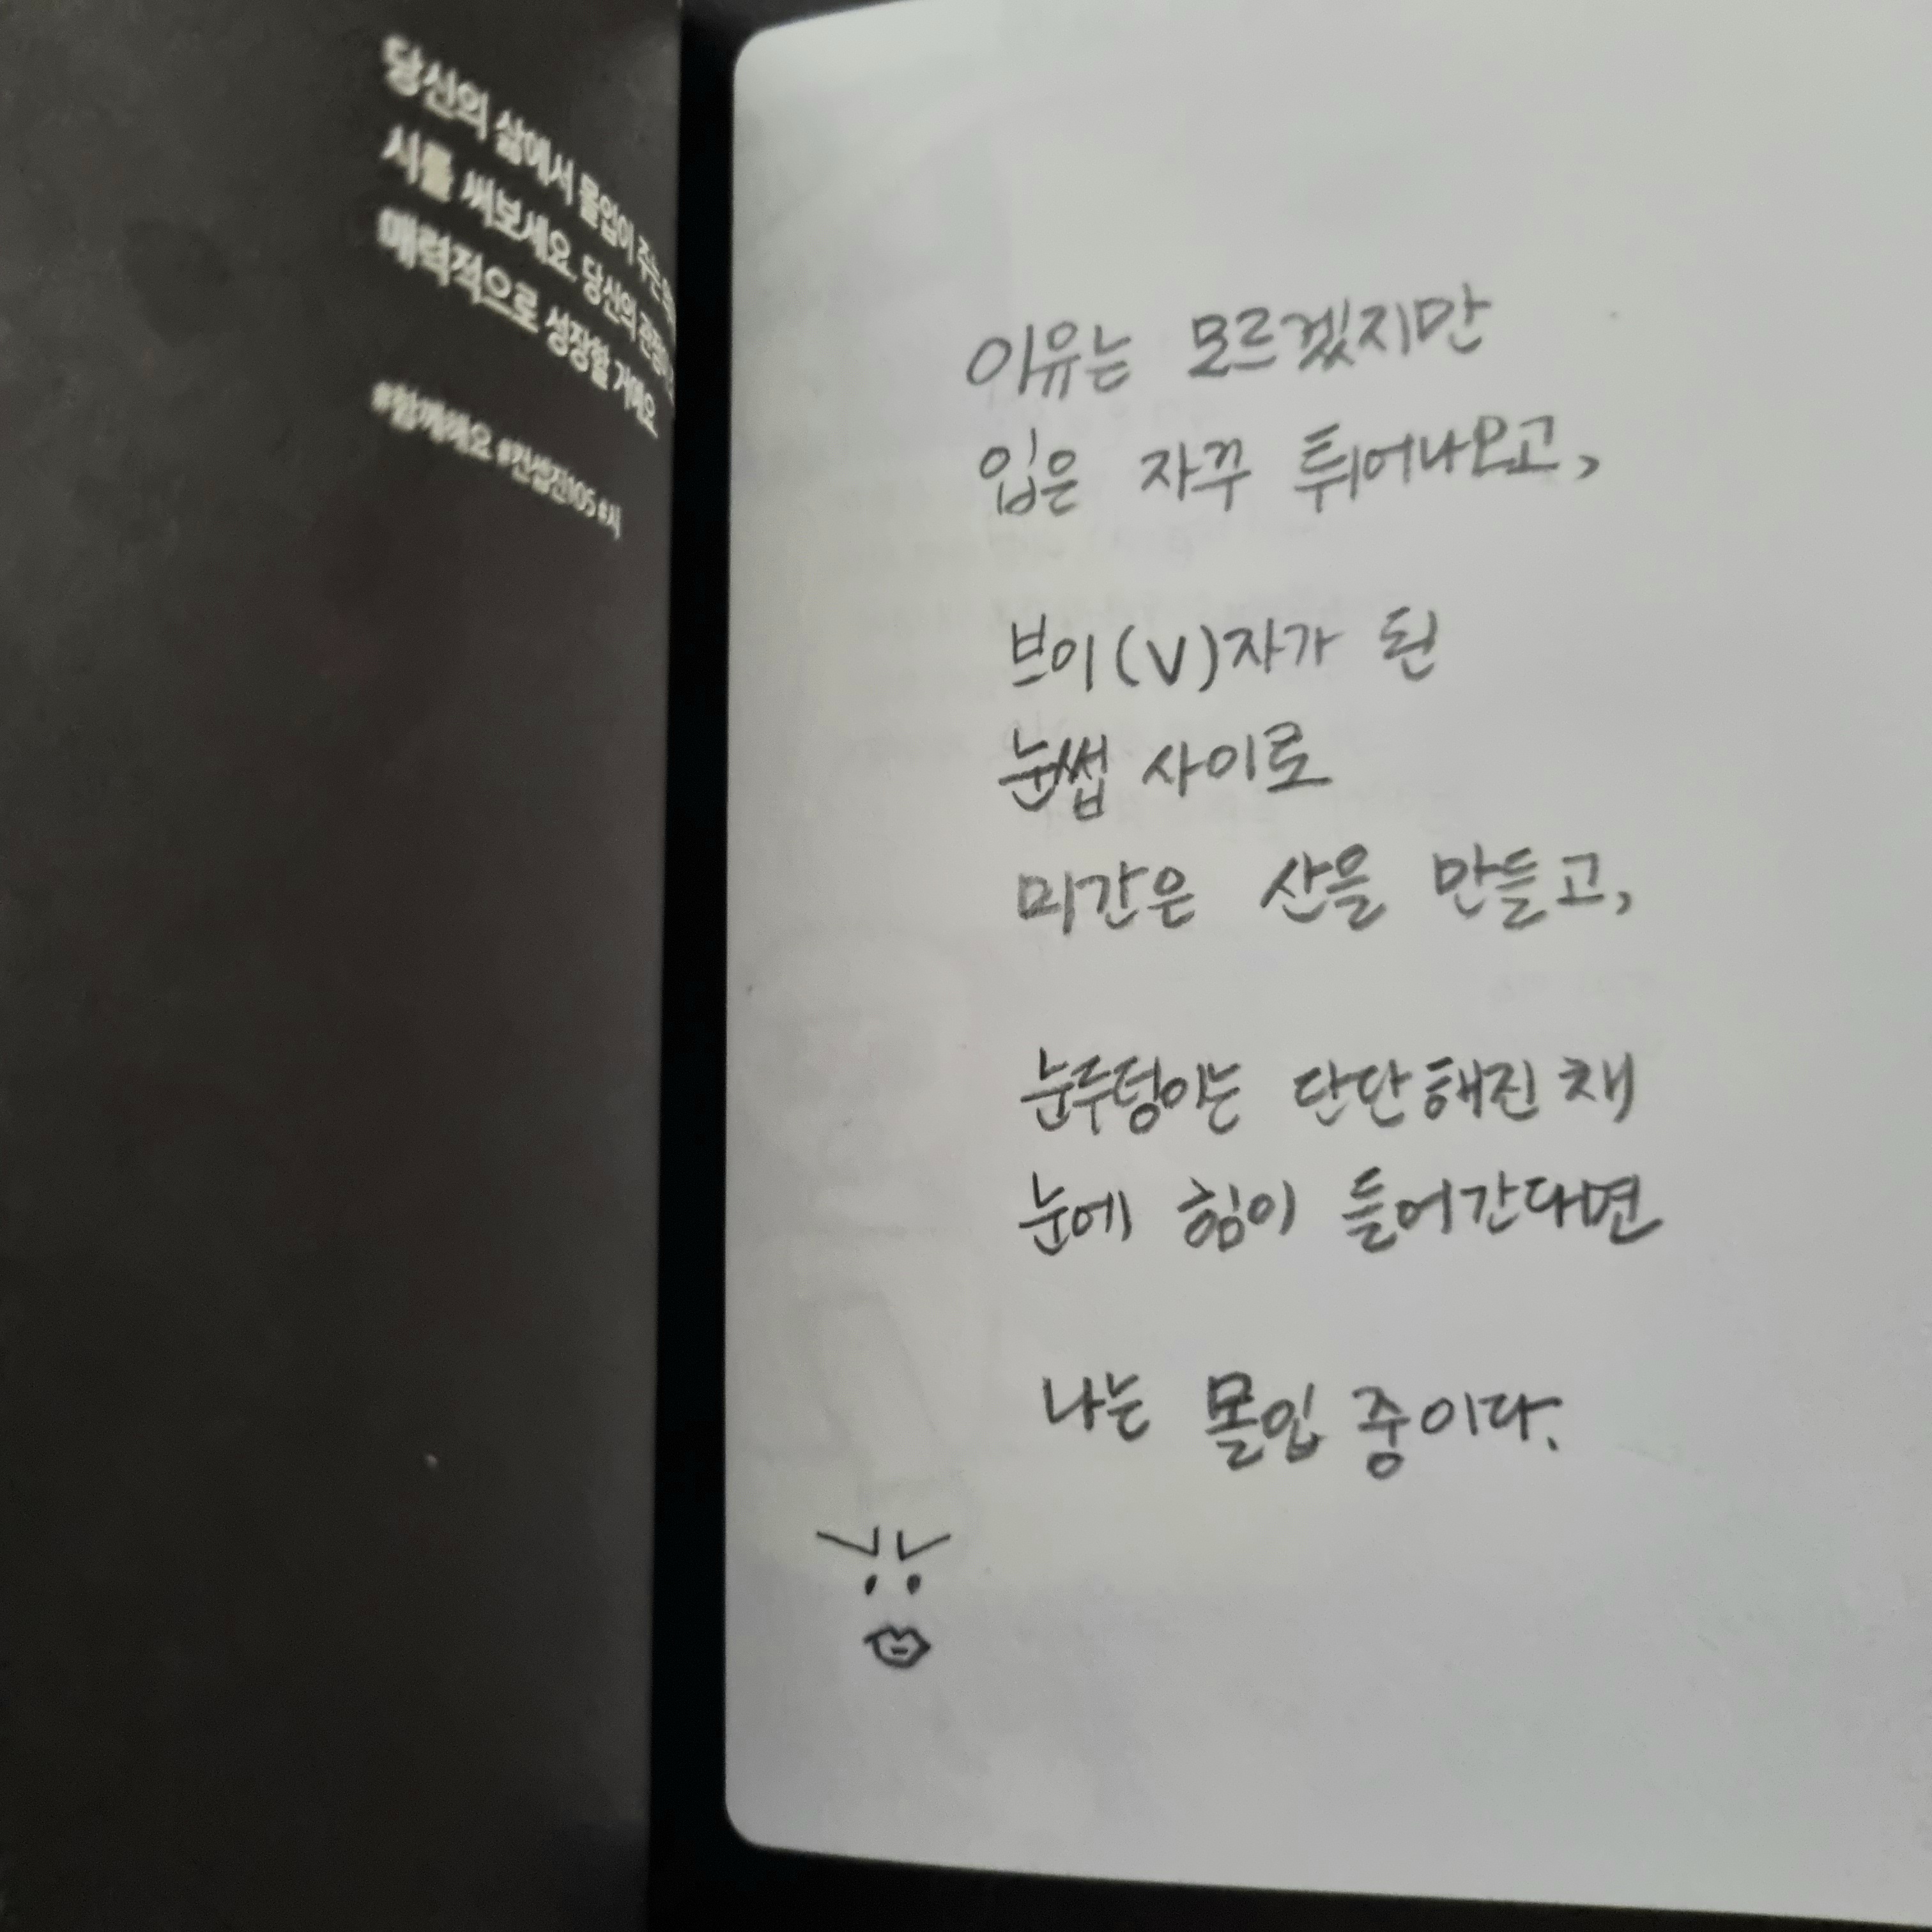 당신의 삶에서 몰입이 주는
시를 써보세요. 당신의
매력적으로 성장할 거예요.
#함께해요 #컨셉진105 #시
이유는 모르겠지만
입은 자꾸 튀어나오고,
브이(V)자가 된
눈썹 사이로
미간은 산을 만들고,
눈두덩이는 단단해진 채
눈에 힘이 들어간다면
나는 몰입 중이다.